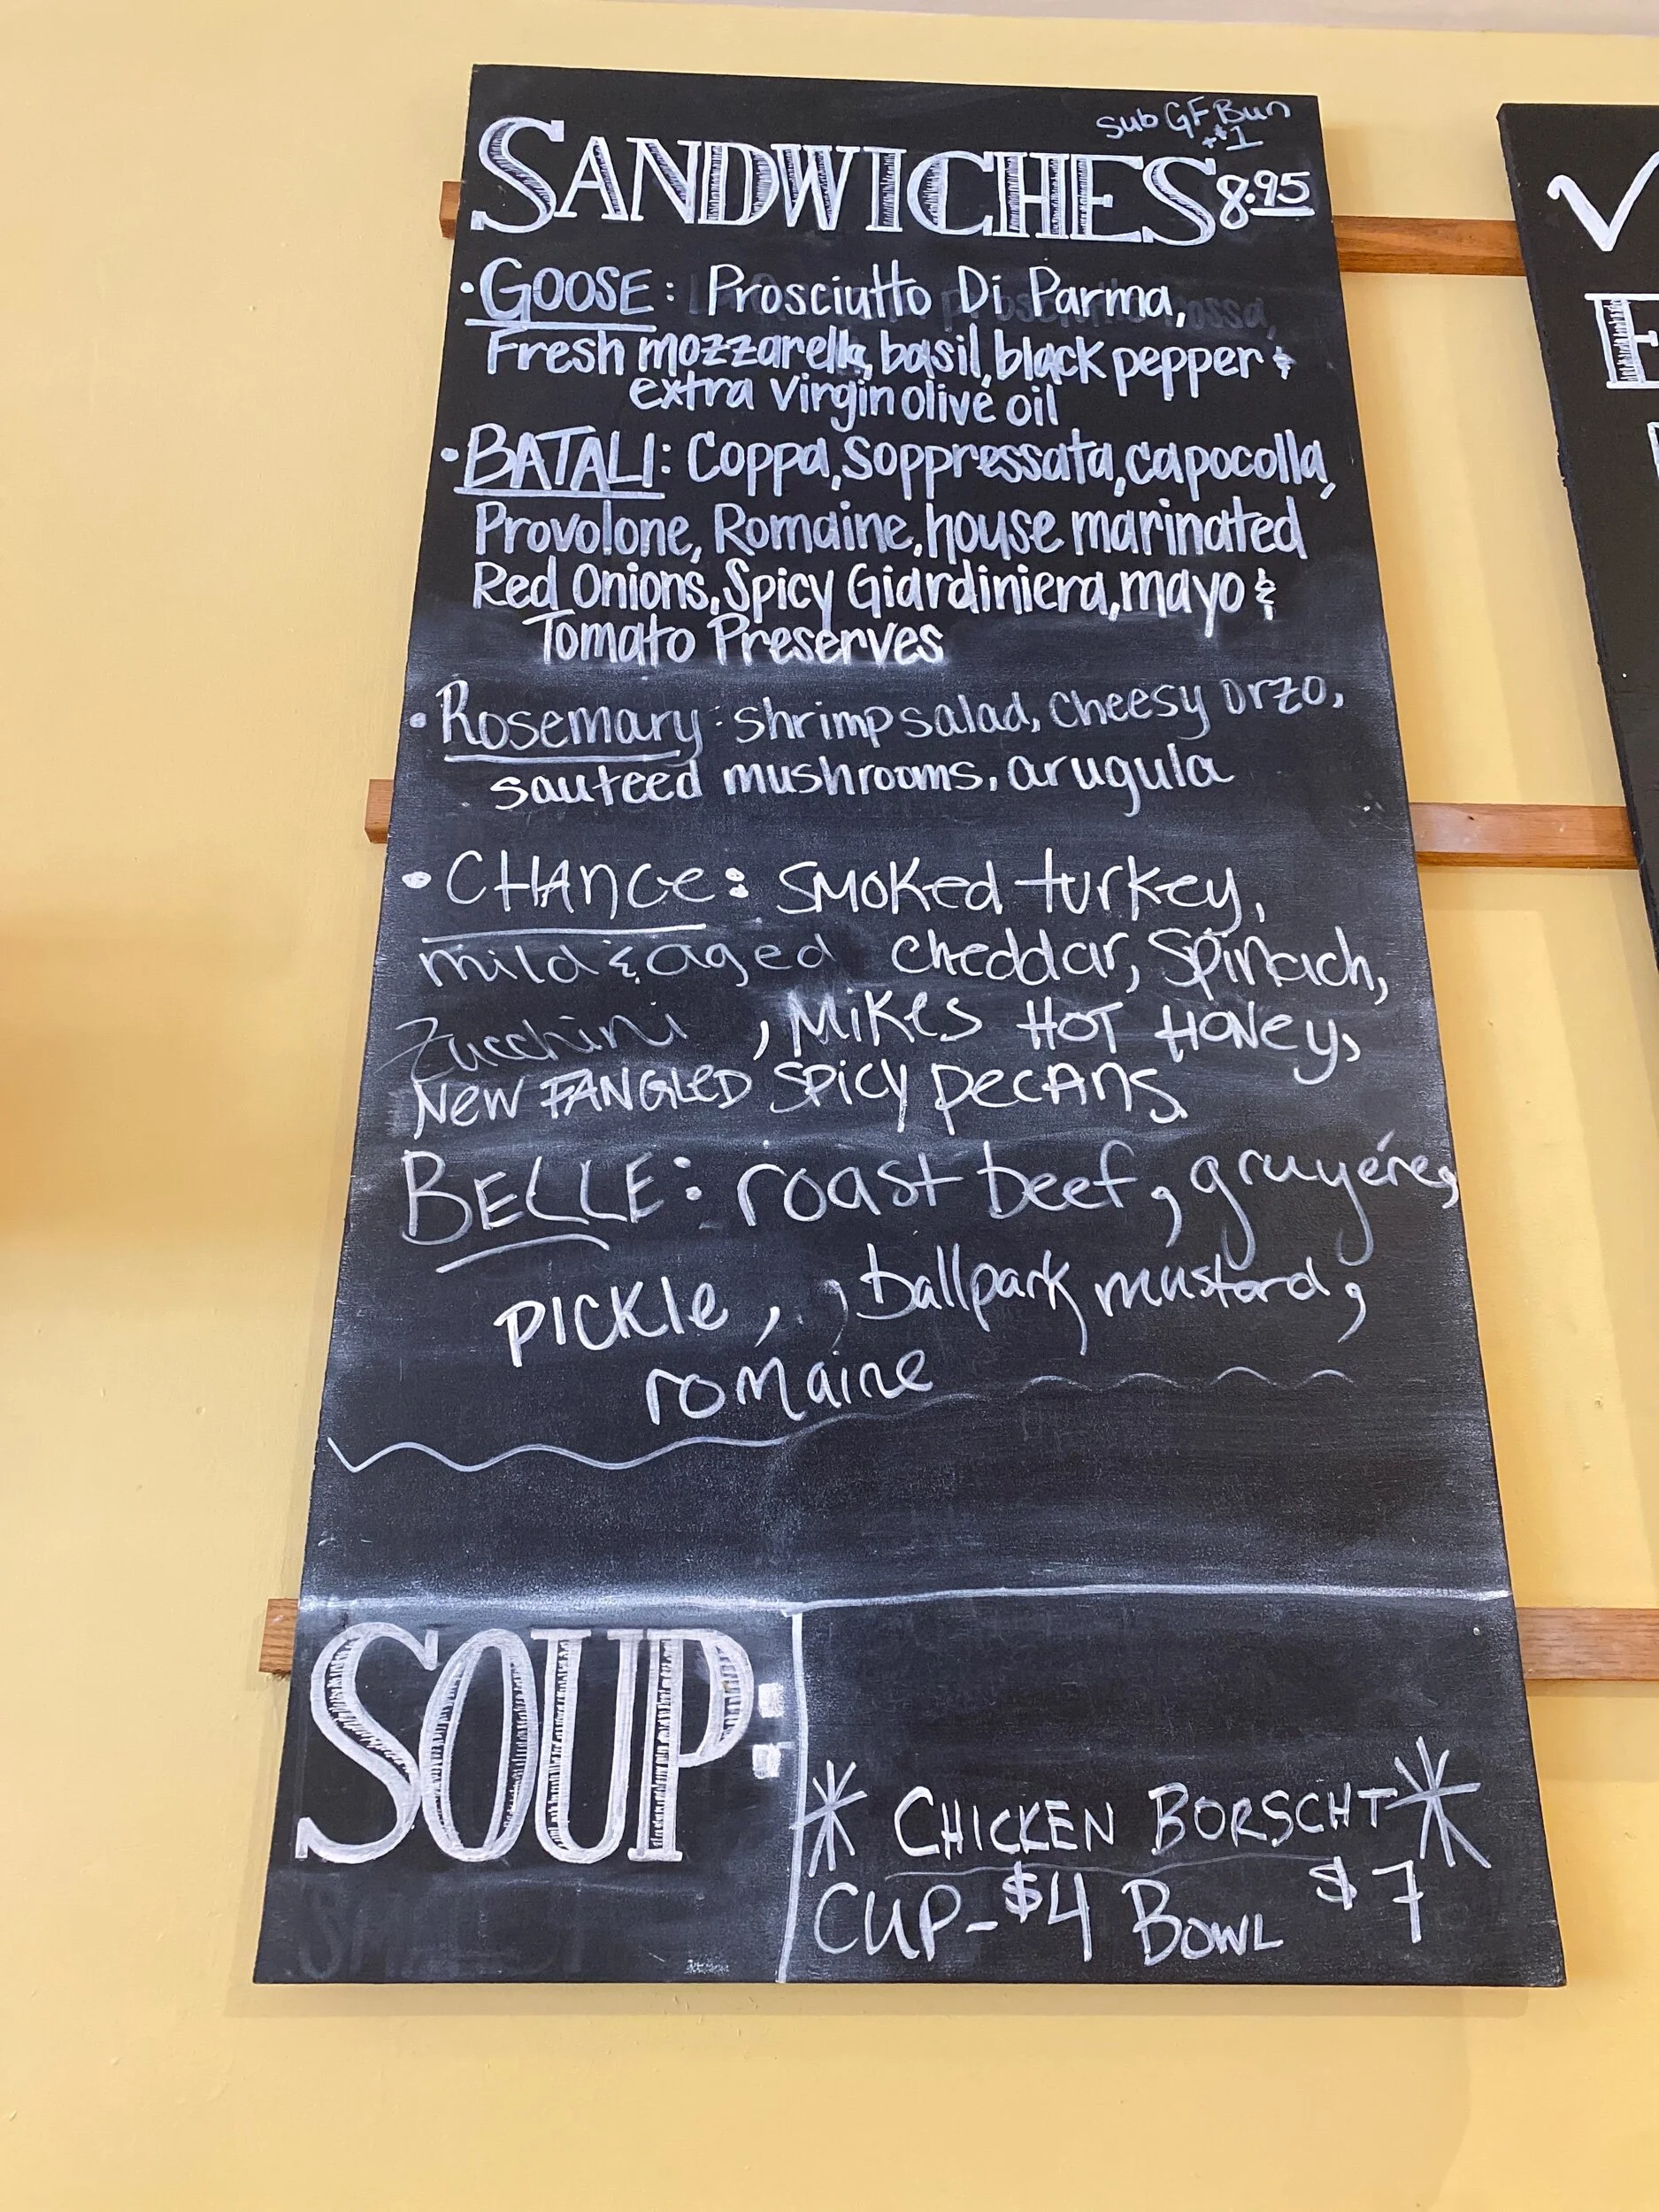 sub GF Bun
+$1
SANDWICHES 8.95
• GOOSE: Prosciutto Di Parma,
Fresh mozzarella, basil, black pepper &
extra virgin olive oil
• BATALI: Coppa, Soppressata, capocolla,
Provolone, Romaine, house marinated
Red Onions, Spicy Giardiniera, mayo &
Tomato Preserves
• Rosemary: shrimp salad, cheesy orzo,
sauteed mushrooms, arugula
• CHANCE: SMOKED turkey,
mild & aged cheddar, Spinach,
Zucchini , MIKES HOT HONEY,
NEW FANGLED SPICY PECANS
BELLE: roast beef, gruyére,
PICKLE, , ballpark mustard,
romaine
SOUP:
* CHICKEN BORSCHT *
CUP- $4 BOWL $7